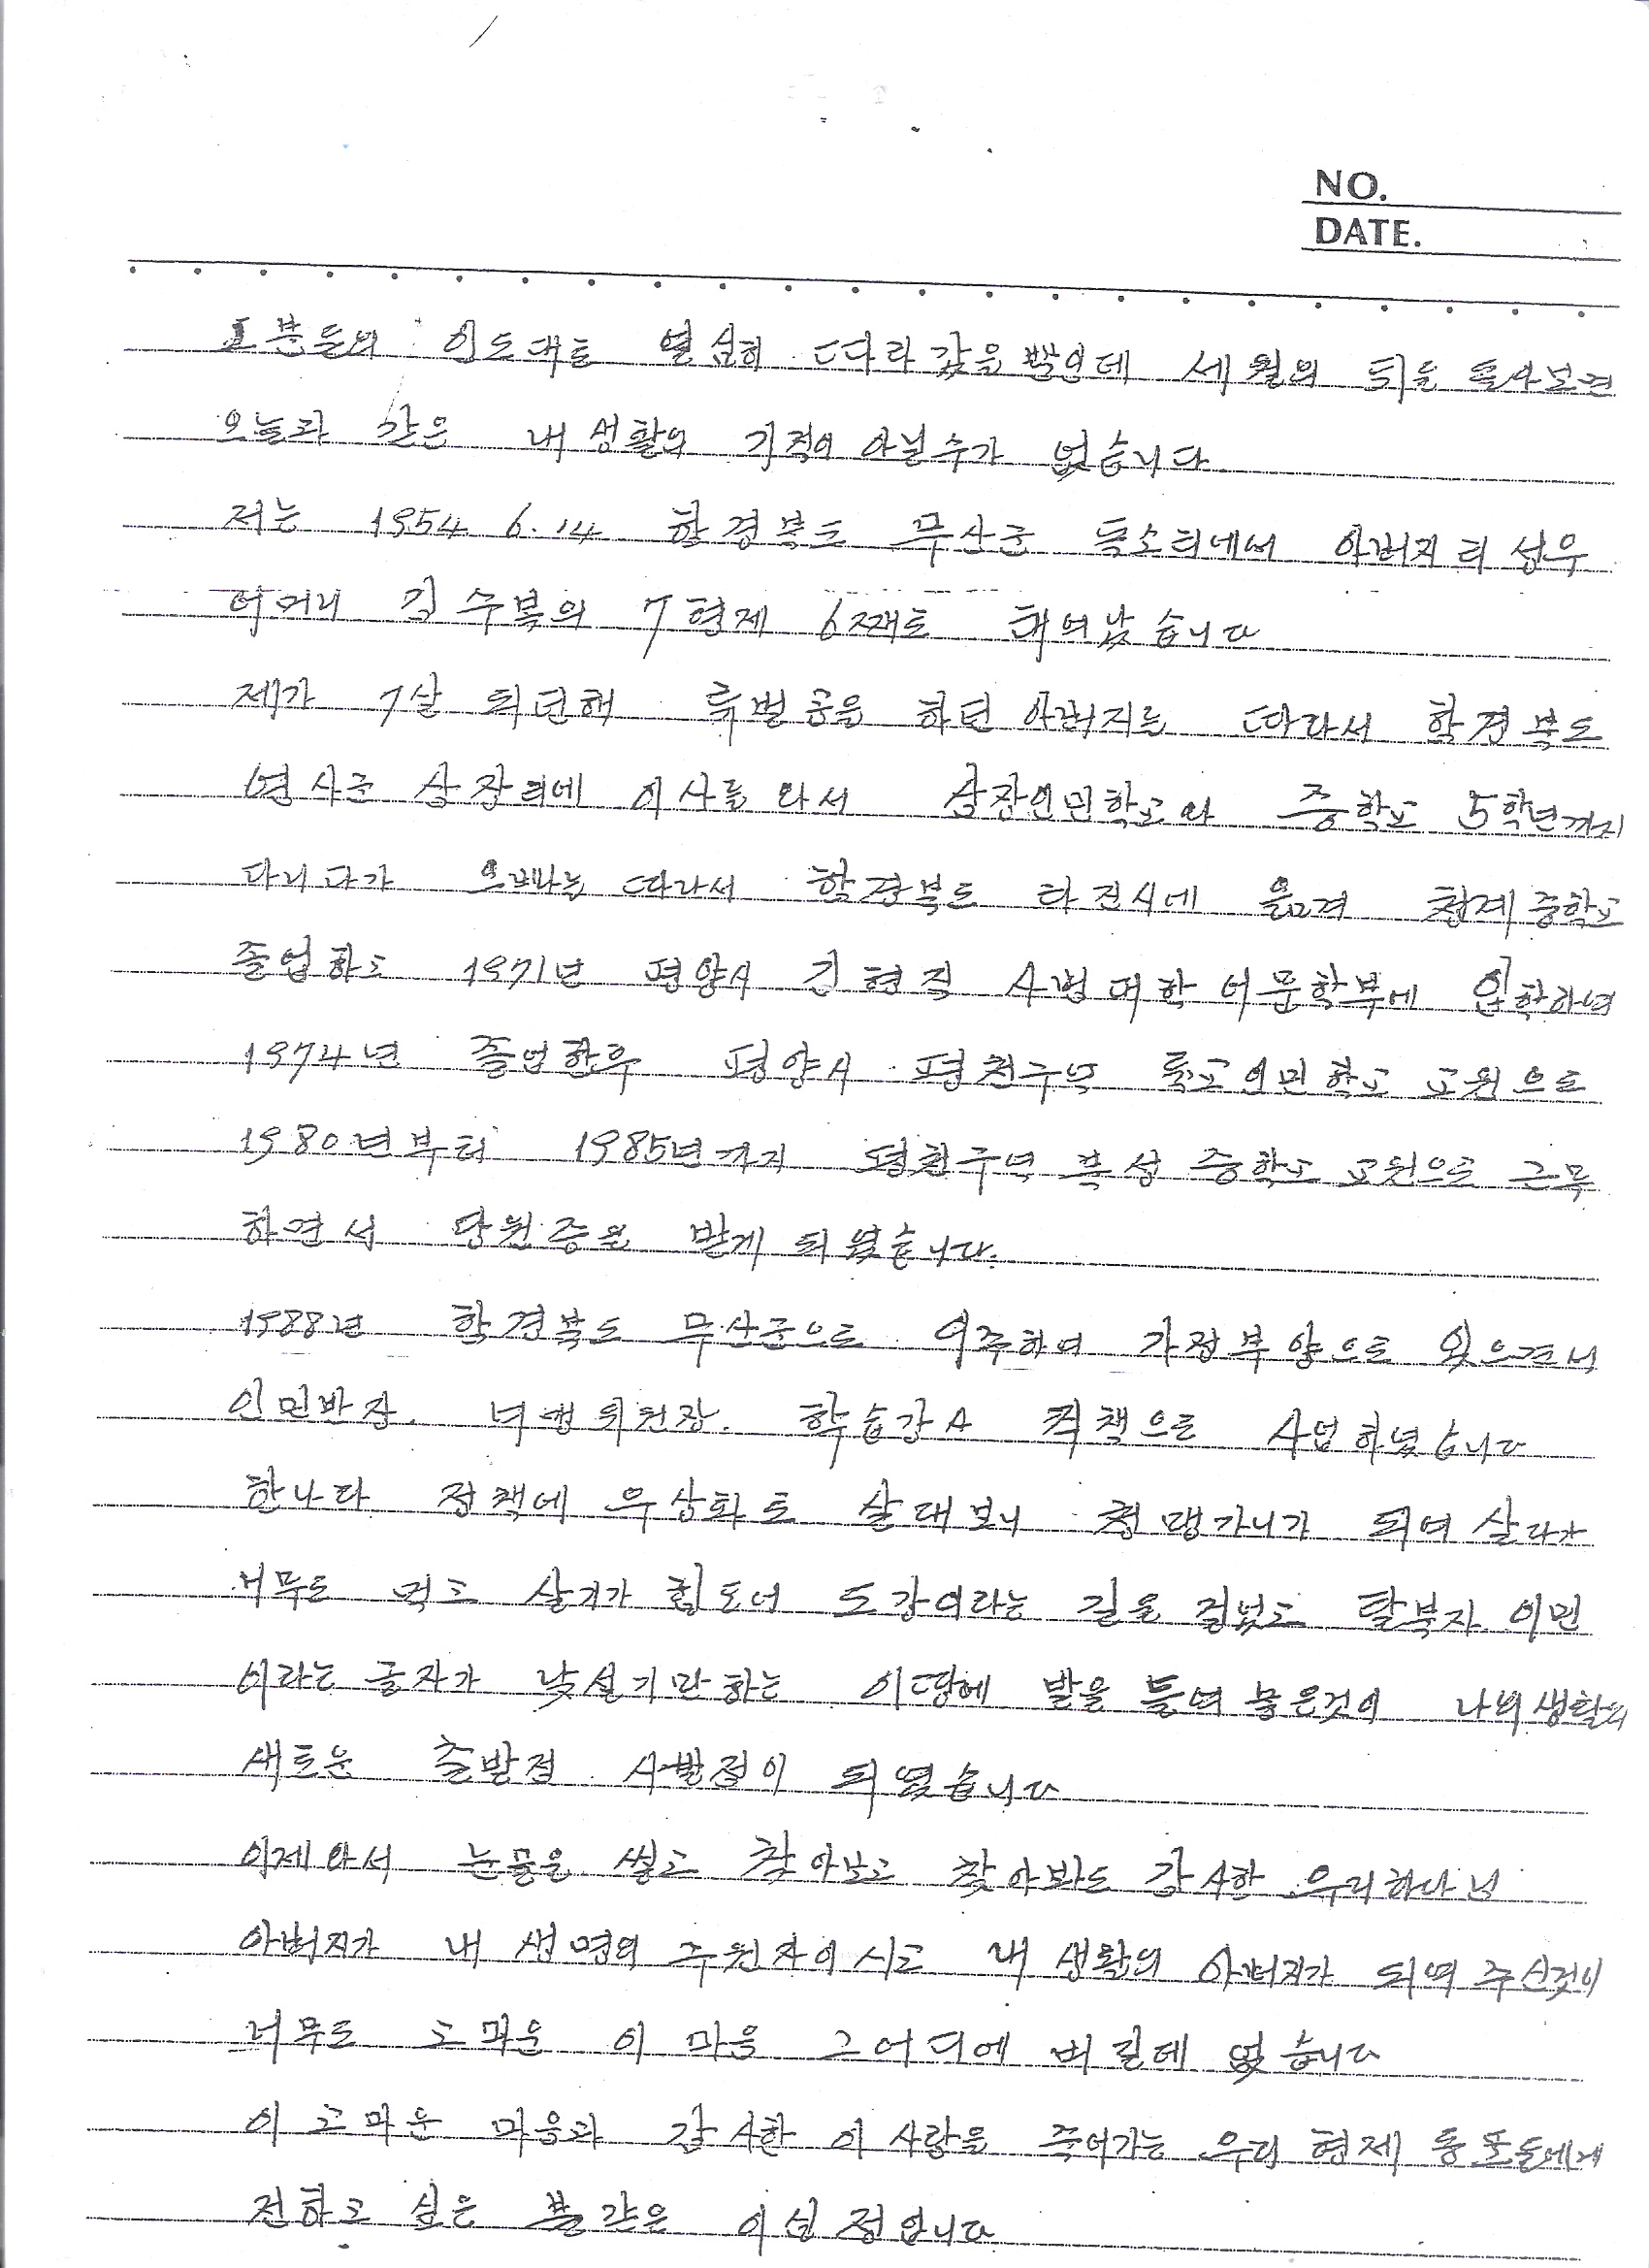 NO.
DATE.
그분들의 인도대로 열심히 따라갔을뿐인데 세월의 뒤을 돌아보면
오늘과 같은 내생활의 기적이 아닐수가 없습니다
저는 1954 6.14 함경북도 무산군 독소리에서 아버지 리성우
어머니 김수복의 7형제 6째로 태여났습니다
제가 7살 되던해 특별공을 하던 아버지를 따라서 함경북도
연사군 삼장리에 이사를 와서 삼장인민학교와 중학교 5학년까지
다니다가 오빠를 따라서 함경북도 라진시에 옮겨 청계중학교
졸업하고 1971년 평양시 김형직 사범대학 어문학부에 입학하여
1974년 졸업한후 평양시 평천구역 륙교인민학교 교원으로
1980년부터 1985년까지 평천구역 북성중학교 교원으로 근무
하면서 당원증을 받게 되였습니다.
1988년 함경북도 무산군으로 이주하여 가정부양으로 있으면서
인민반장. 녀맹위원장. 학습강사 직책으로 사업하였습니다
한나라 정책에 우상화로 살대보니 청맹가니가 되여 살다가
너무도 먹고 살기가 힘드어 도강이라는 길을 걸었고 탈북자. 이민
이라는 글자가 낯설기만하는 이땅에 발을 들여 놓은것이 나의생활의
새로운 출발점 시발점이 되였습니다
이제와서 눈물을 씻고 찾아보고 찾아봐도 감사한 우리하나님
아버지가 내 생명의 구원자이시고 내 생활의 아버지가 되여 주신것이
너무도 고마운 이 마음 그어디에 비길데 없습니다
이 고마운 마음과 감사한 이 사랑을 죽어가는 우리 형제 동포들에게
전하고 싶은 불같은 이심정입니다